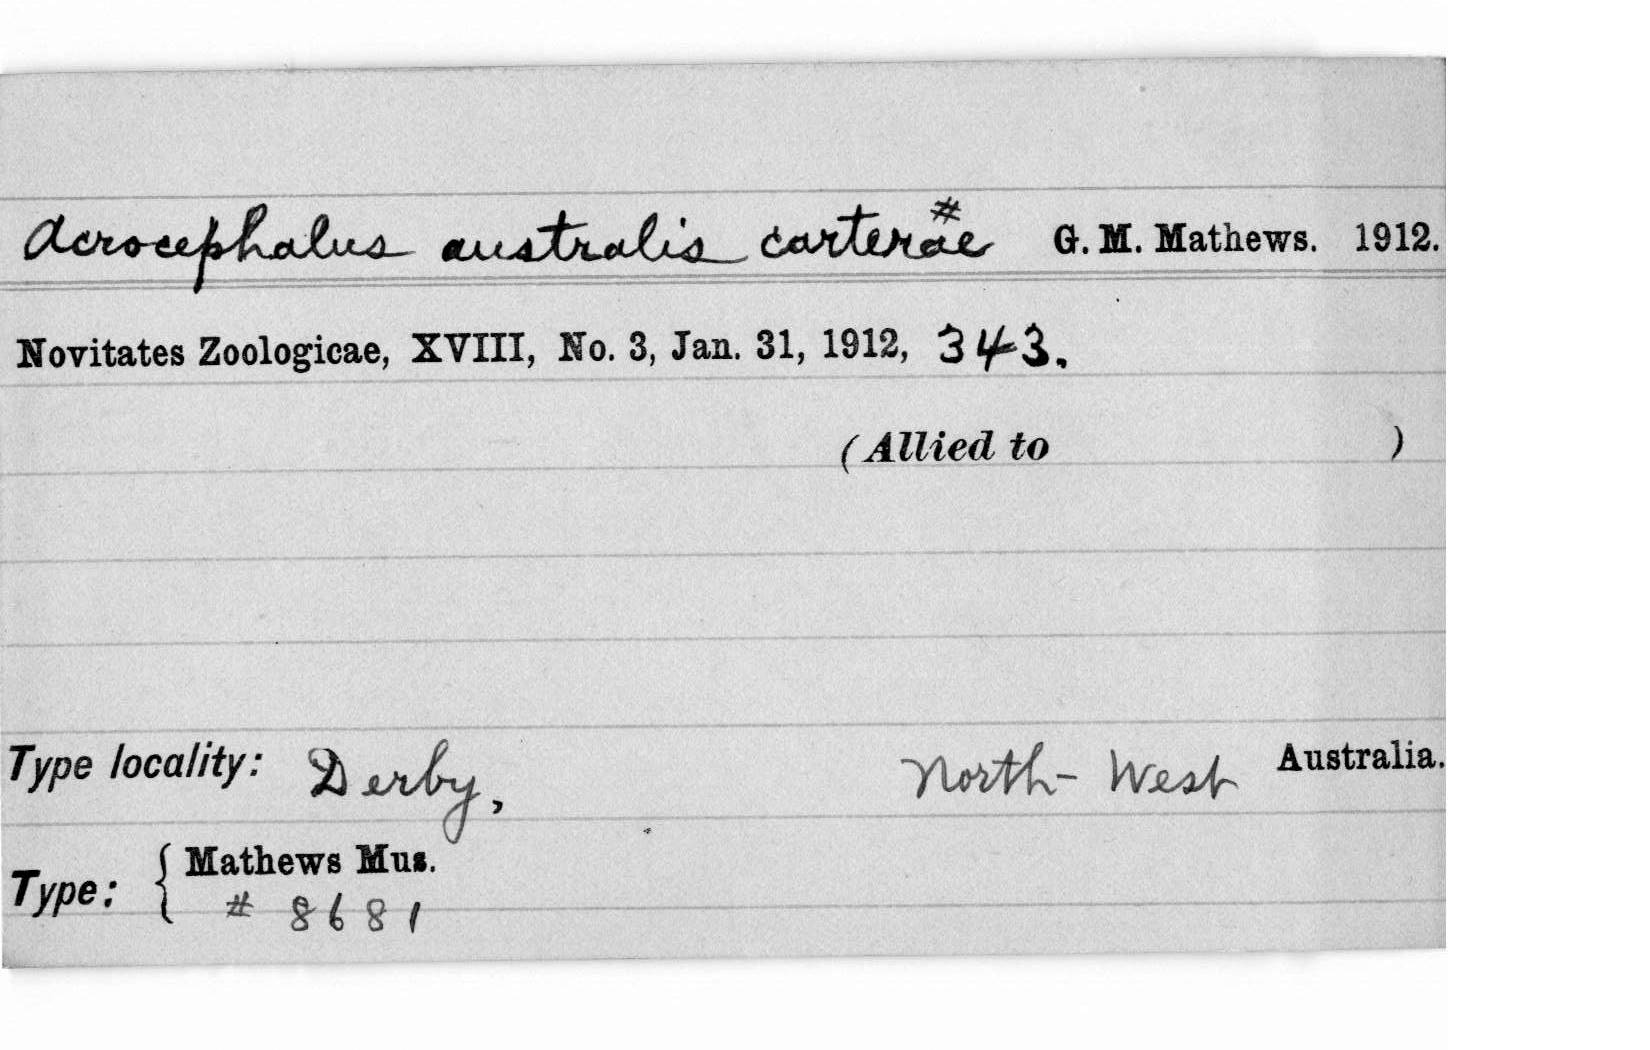 Acrocephalus australis carterae # G. M. Mathews. 1912.
Novitates Zoologicae, XVIII, No. 3, Jan. 31, 1912, 343.
(Allied to )
Type locality: Derby, North-West Australia.
Type: { Mathews Mus.
# 8681